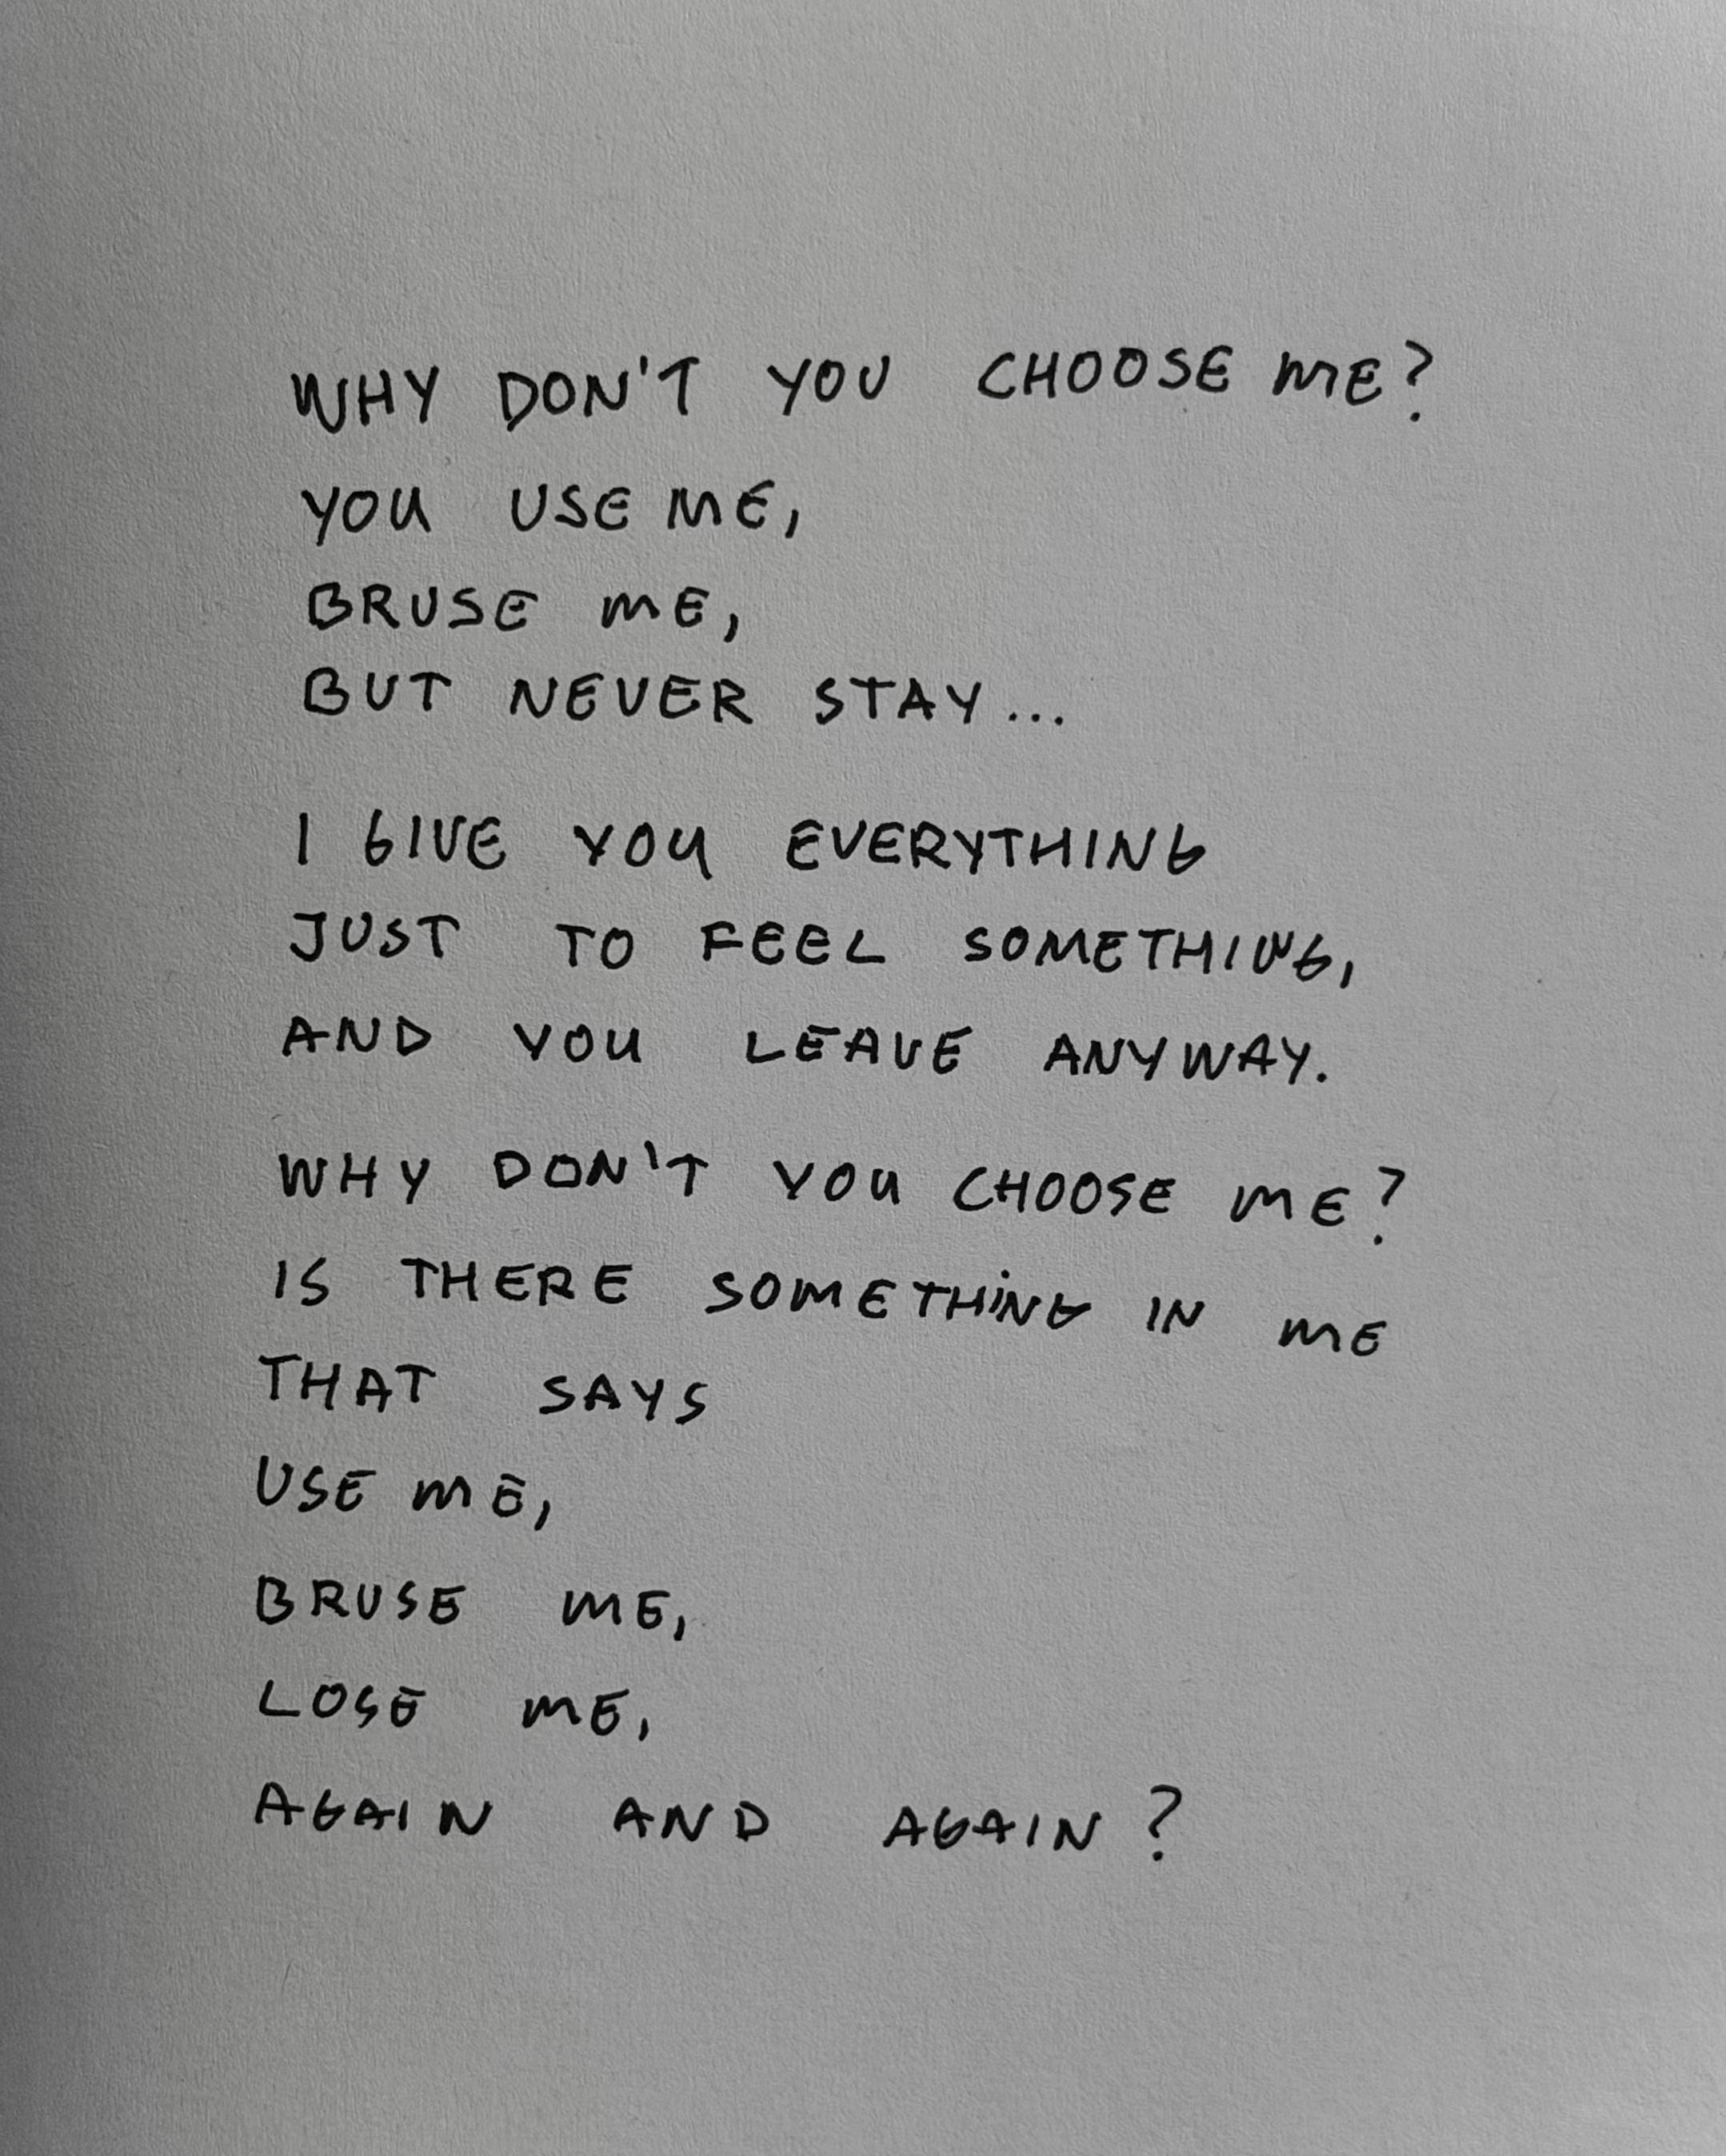 WHY DON'T YOU CHOOSE ME?
YOU USE ME,
BRUSE ME,
BUT NEVER STAY...
I GIVE YOU EVERYTHING
JUST TO FEEL SOMETHING,
AND YOU LEAVE ANYWAY.
WHY DON'T YOU CHOOSE ME?
IS THERE SOMETHING IN ME
THAT SAYS
USE ME,
BRUSE ME,
LOSE ME,
AGAIN AND AGAIN?